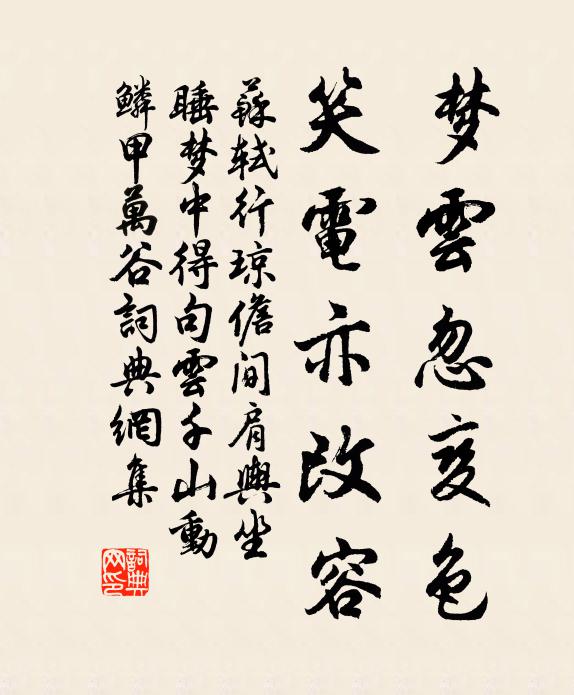 梦雲忽変色
笑電亦改容
蘇軾行琼儋间肩輿坐
睡梦中得句雲千山動
鱗甲萬谷詞典網集
詞典
网印